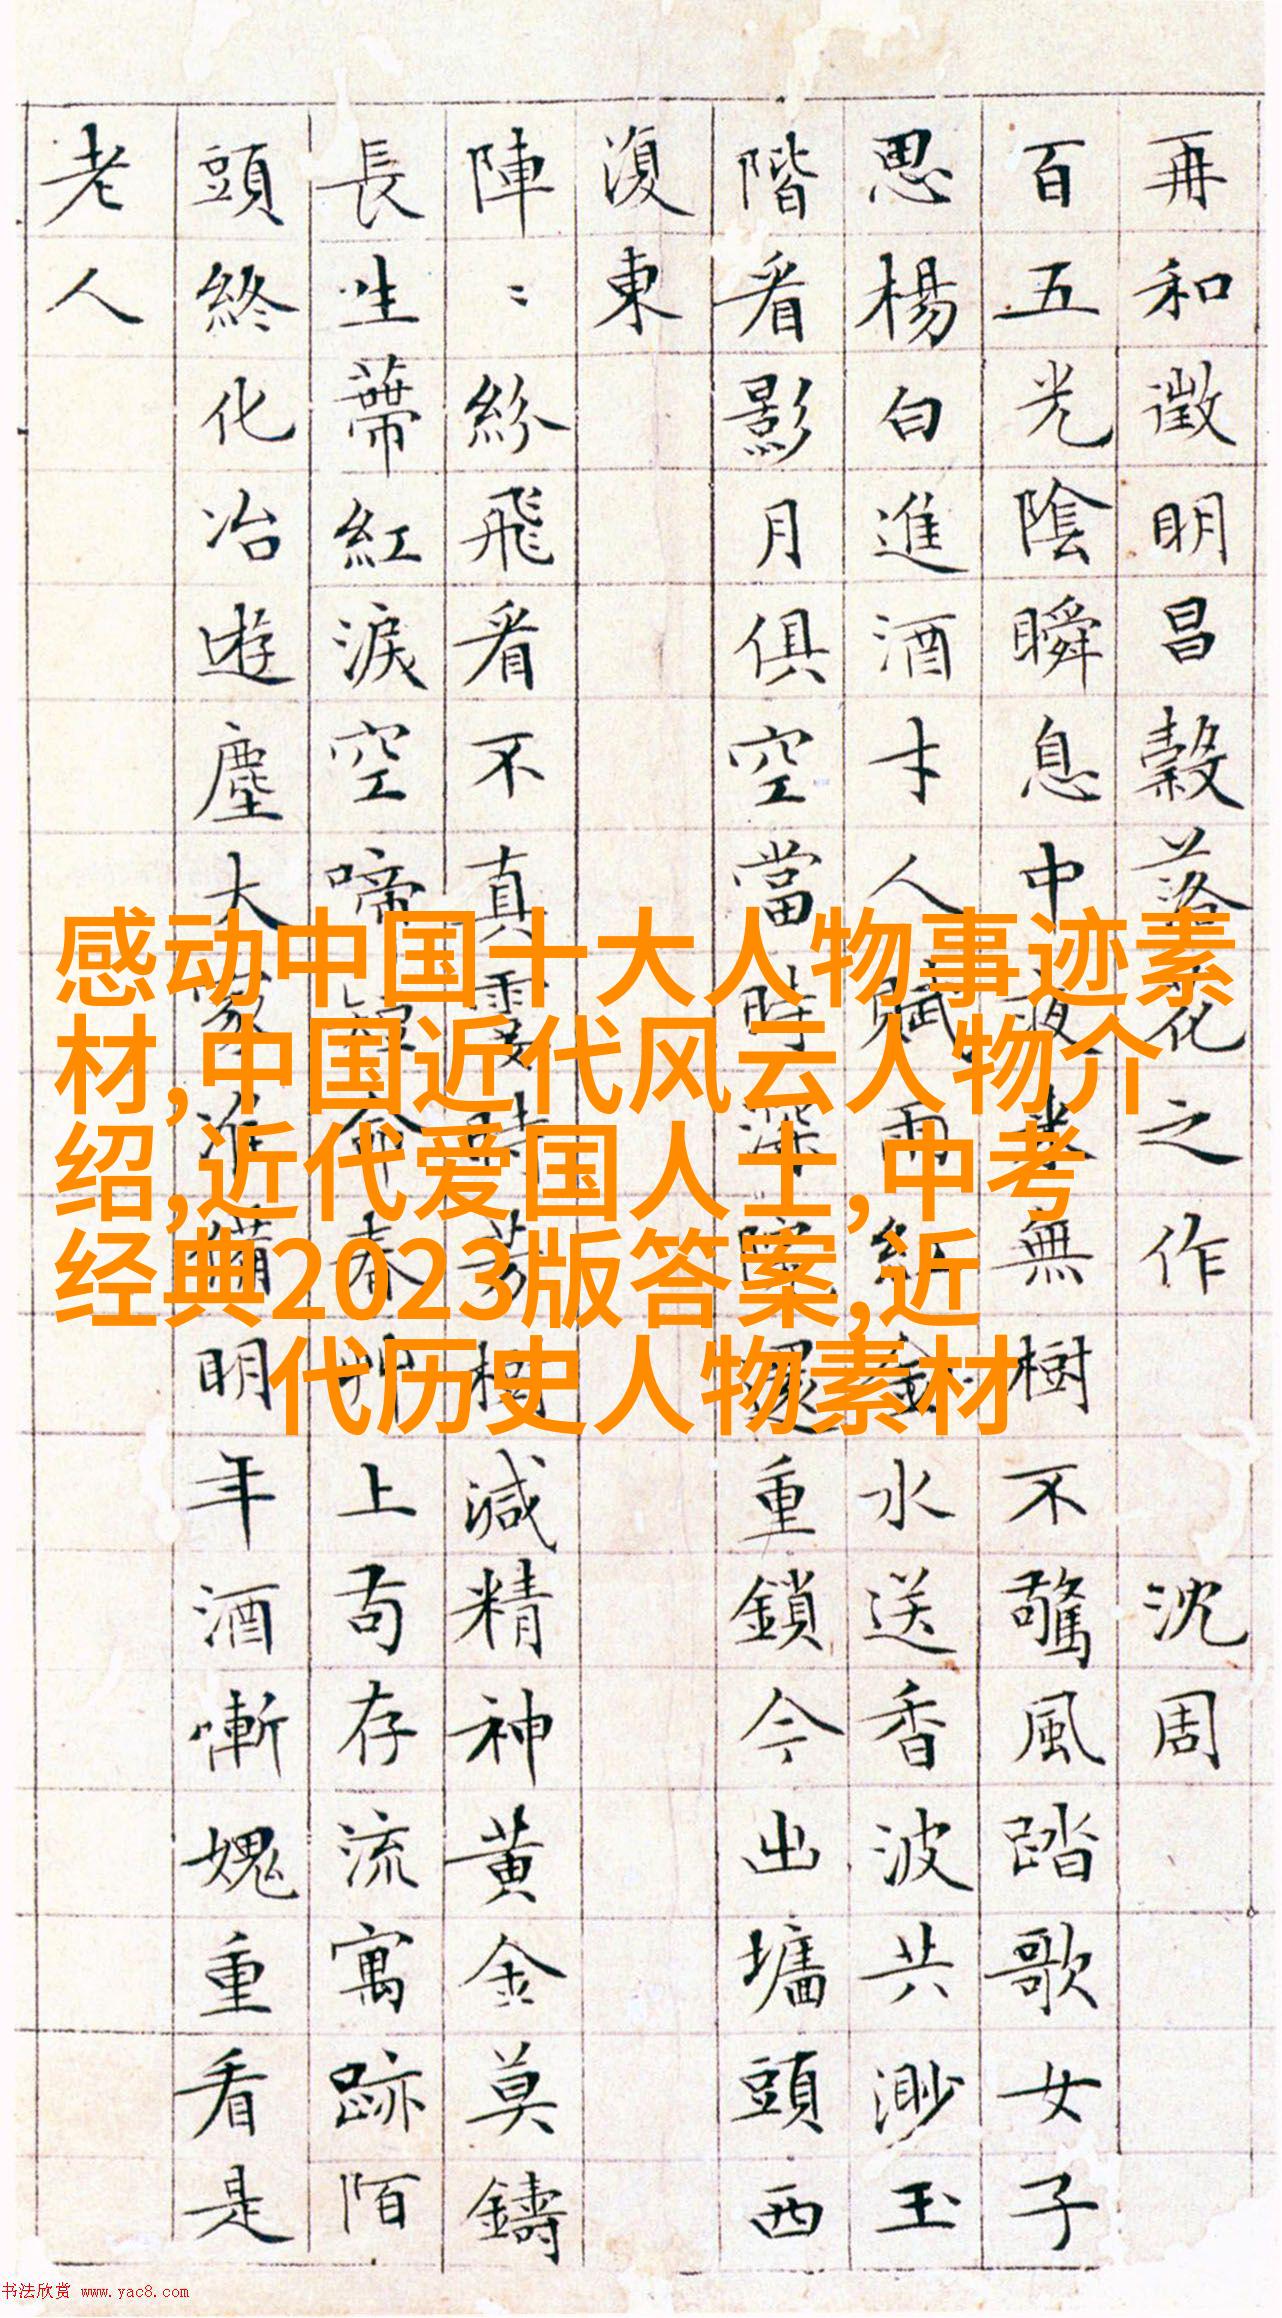 再和徵明昌穀落花之作 沈周
百五光陰瞬息中夜来無樹不驚風踏歌女子
思楊白進酒才人賦雨紅金水送香波共渺玉
階看影月俱空當時深院還重鎖今出墻頭西
復東
陣〻紛飛看不真霎時芳樹減精神黄金莫鑄
長生蒂紅淚空啼短命春草上苟存流寓跡陌
頭終化冶遊塵大家准備明年酒慚媿重看是
老人
感动中国十大人物事迹素
材,中国近代风云人物介
绍,近代爱国人士,中考
经典2023版答案,近
代历史人物素材
书法欣赏 www.yac8.com